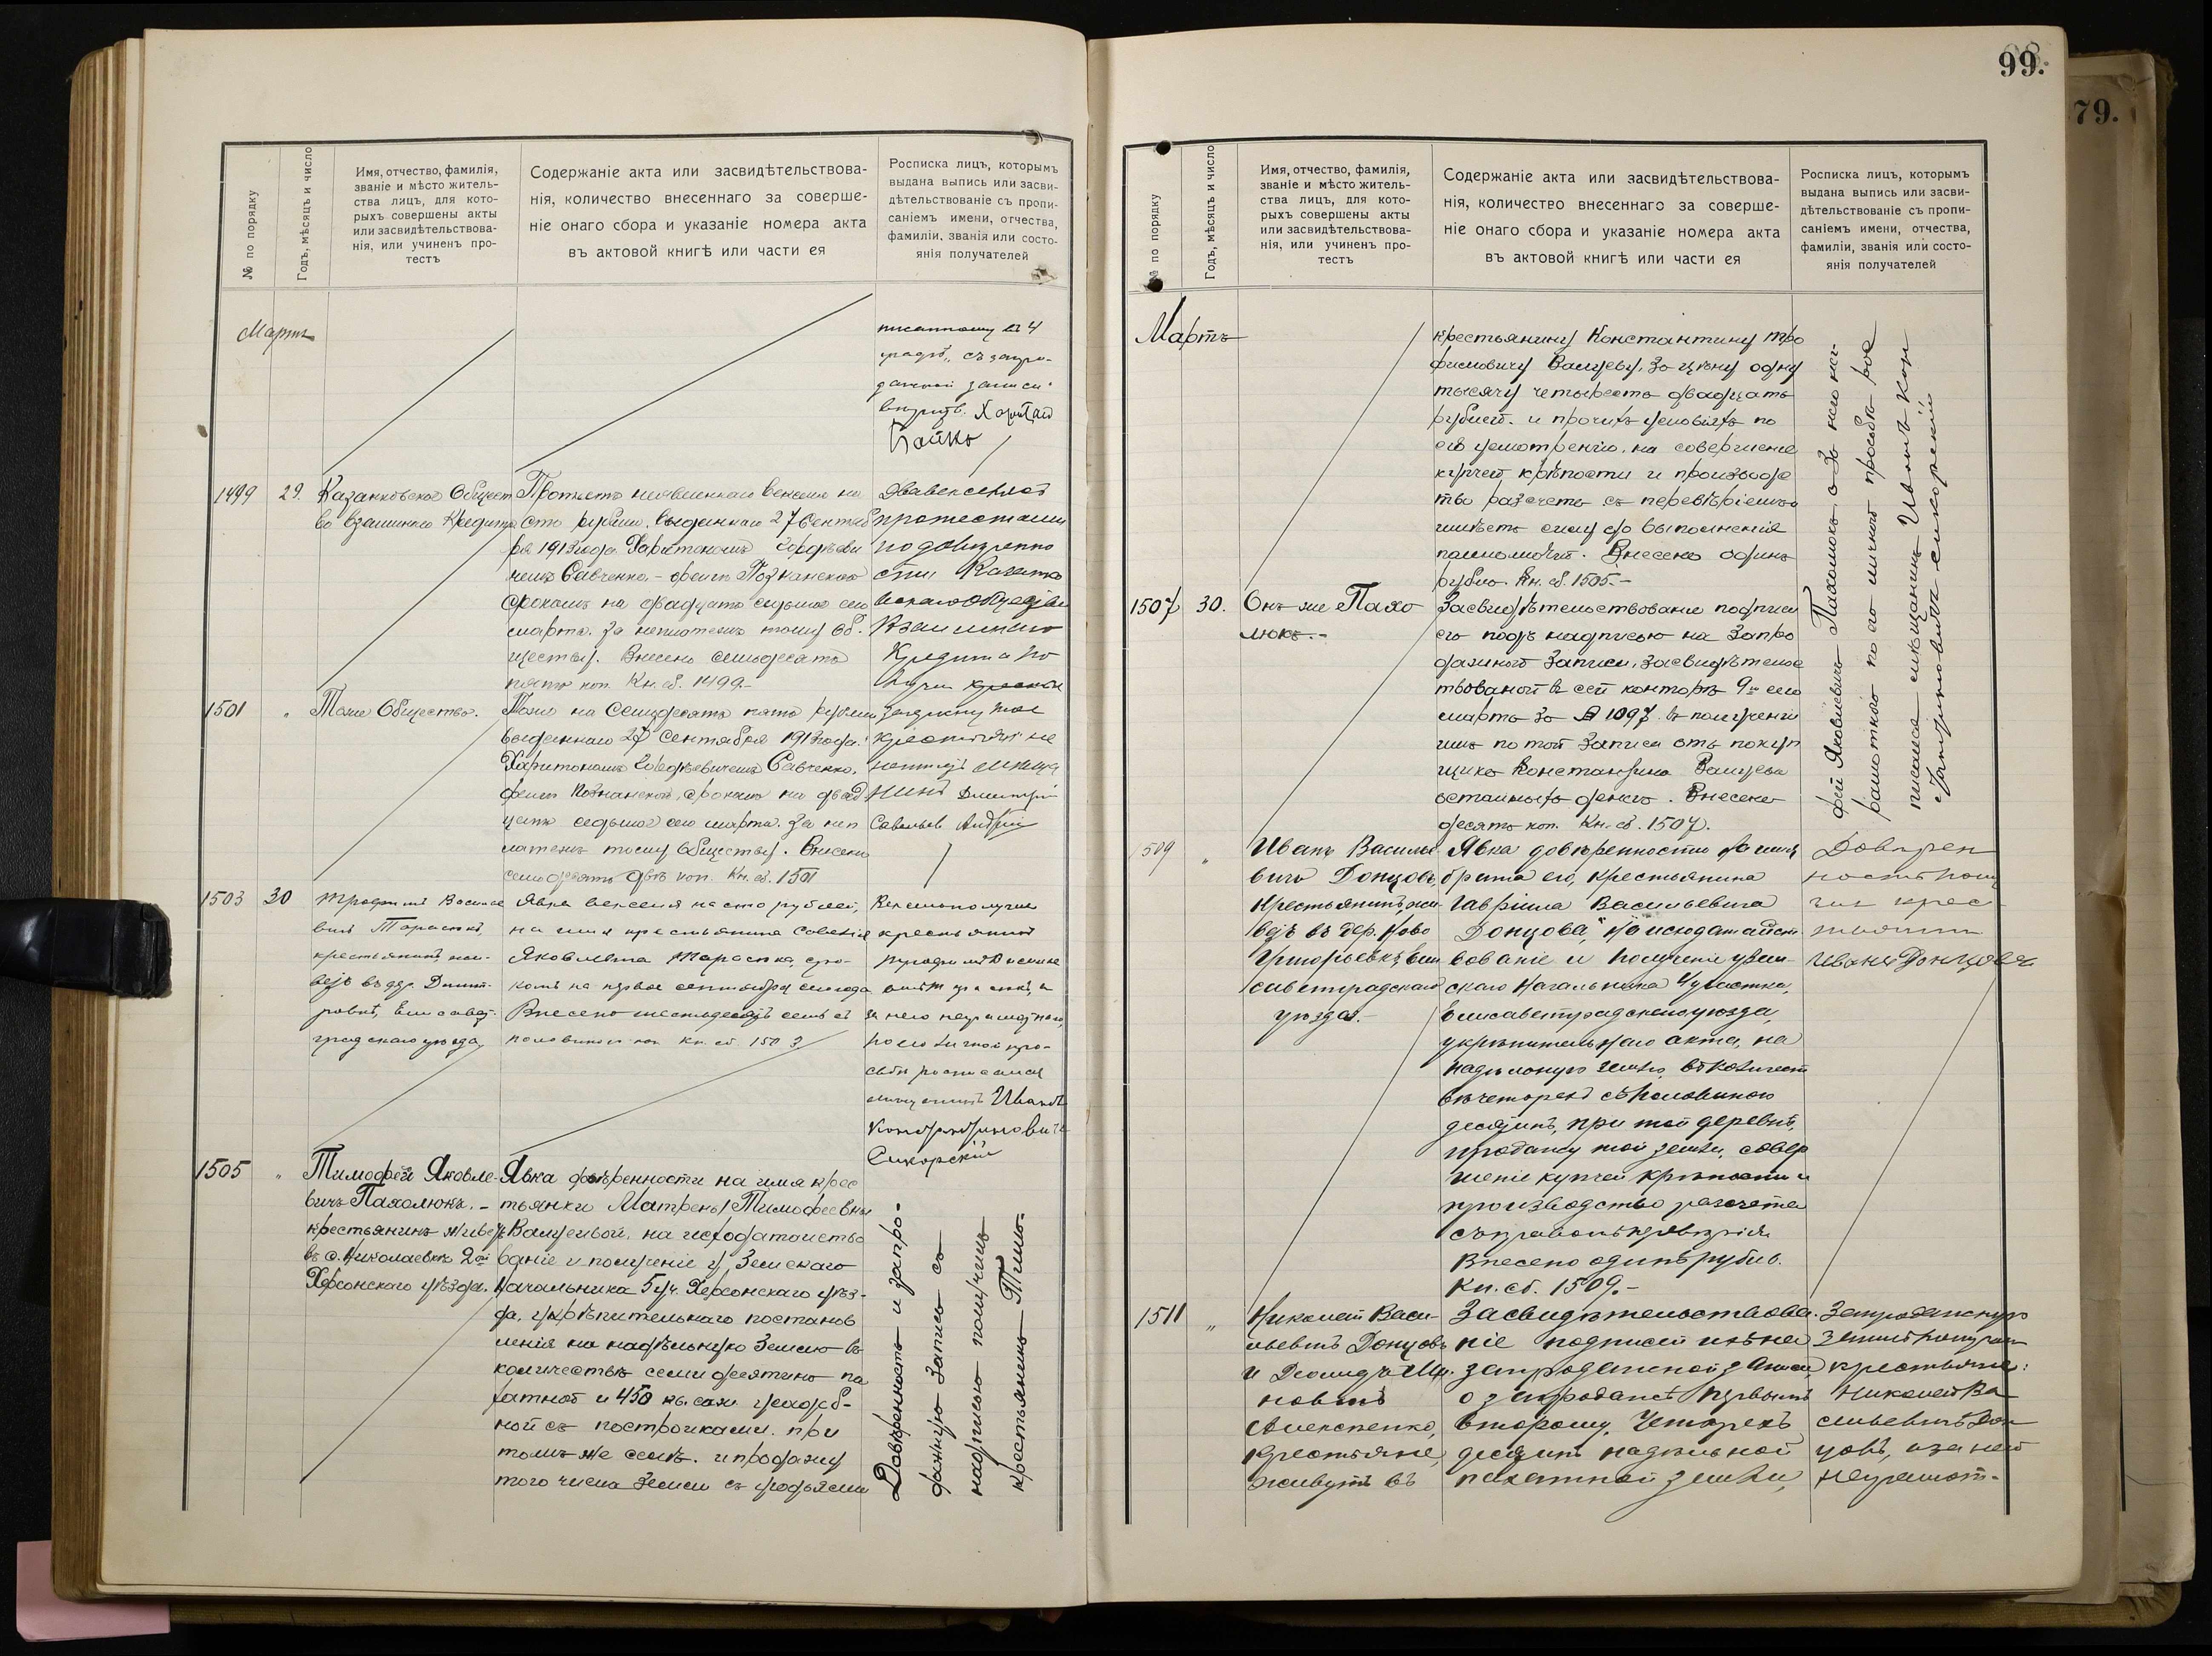 99.
79.
№ по порядку
Годъ, мѣсяцъ и число
Имя, отчество, фамилія,
званіе и мѣсто житель-
ства лицъ, для кото-
рыхъ совершены акты
или засвидѣтельствова-
нія, или учиненъ про-
тестъ
Содержаніе акта или засвидѣтельствова-
нія, количество внесеннаго за соверше-
ніе онаго сбора и указаніе номера акта
въ актовой книгѣ или части ея
Росписка лицъ, которымъ
выдана выпись или засви-
дѣтельствованіе съ пропи-
саніемъ имени, отчества,
фамиліи, званія или состо-
янія получателей
Мартъ
записи
Бойко
1499
29.
Казанковское Общест
во взаимнаго Кредита
Протестъ неявленнаго векселя на
сто рублей, выданнаго 27 Сентяб
ря 1913 года Харитономъ
Савченко
срокомъ на двадцать седьмое сего
марта. За неплатежъ тому Об-
ществу. Внесено семьдесятъ
пять коп. Кн. сб. 1499.-
Два векселя съ
протестами
по довѣренно
сти Казанко
вскаго Общества
Взаимнаго
Кредита по
лучилъ
1501
"
Тоже Общество.
Тоже на Семьдесятъ пять рублей
выданнаго 27 Сентября 1913 года
Савченко,
срокомъ на двад
цать седьмое сего марта. За неп
латежъ тому Обществу. Внесено
семьдесятъ двѣ коп. Кн. сб. 1501
Савельевъ
1503
30
Трофимъ Василье
вичъ Тарасюкъ,
крестьянинъ, жи-
ветъ въ дер. Дмит-
ровкѣ, Елисавет-
градскаго уѣзда.
Явка векселя на сто рублей,
на имя крестьянина Савелія
Яковлевича Тарасюка, сро-
комъ на первое сентября сего года
Внесено шестьдесятъ семь съ
половиною коп Кн. сб. 1503
Вексель получилъ
крестьянинъ
Трофимъ Василье
вичъ Тарасюкъ, а
за него неграмотнаго,
по его личной про-
сьбѣ росписался
мѣщанинъ Иванъ
Кондратиновичъ
Сикорскій
1505
"
Тимофей Яковле-
вичъ Пахолюкъ.-
крестьянинъ живетъ
въ с. Николаевкѣ 2ой
Херсонскаго уѣзда.
Явка довѣренности на имя крес
тьянки Матрены Тимофеевны
Валуевой, на исходатайство
ваніе и полученіе у Земскаго
Начальника 5 уч. Херсонскаго уѣз-
да, укрѣпительнаго постанов
ленія на надѣльную Землю въ
количествѣ семи десятинъ па
хатной и 450 кв. саж. усадеб-
ной съ постройками. при
томъ же селѣ. и продажу
того числа Земли съ угодьями
Довѣренность и запро-
дажную запись съ
надписью получилъ
крестьянинъ Тимо-
№ по порядку
Годъ, мѣсяцъ и число
Имя, отчество, фамилія,
званіе и мѣсто житель-
ства лицъ, для кото-
рыхъ совершены акты
или засвидѣтельствова-
нія, или учиненъ про-
тестъ
Содержаніе акта или засвидѣтельствова-
нія, количество внесеннаго за соверше-
ніе онаго сбора и указаніе номера акта
въ актовой книгѣ или части ея
Росписка лицъ, которымъ
выдана выпись или засви-
дѣтельствованіе съ пропи-
саніемъ имени, отчества,
фамиліи, званія или состо-
янія получателей
Мартъ
крестьянину Константину Тро
фимовичу Валуеву, за цѣну одну
тысячу четыреста двадцать
рублей. и прочихъ условіяхъ по
его усмотренію, на совершеніе
купчей крѣпости и производс
тво разсчета съ
имѣетъ силу до выполненія
полномочій. Внесено одинъ
рубль. Кн. сб. 1505.-
фей Яковлевичъ Пахолюкъ, а за него нег-
рамотнаго по его личной просьбѣ рос
писался мѣщанинъ Иванъ Кон
дратиновичъ Сикорскій
1507
30.
Онъ же Пахо
люкъ.-
Засвидѣтельствованіе подписи
его подъ надписью на Запро
дажной Записи, засвидѣтельс
твованой въ сей конторѣ 9го сего
марта за № 1097. въ полученіи
имъ по той Записи отъ покуп
щика Константина Валуева
остальныхъ денегъ. Внесено
десять коп. Кн. сб. 1507.
1509
"
Иванъ Василье
вичъ Донцовъ,
крестьянинъ, жи-
ветъ въ дер. Ново
Григорьевкѣ, Ели
саветградскаго
уѣзда.-
Явка довѣренности на имя
брата его, крестьянина
Гавріила Васильевича
Донцова, на исходатайст
вованіе и полученіе у Зем-
скаго Начальника 4 участка,
Елисаветградскаго уѣзда,
укрѣпительнаго акта, на
надѣльную землю, въ количест
вѣ четырехъ съ половиною
десятинъ, при той деревнѣ,
продажу той земли, совер
шеніе купчей крѣпости и
производство разсчета
съ правомъ передовѣрія.
Внесено одинъ рубль.
Кн. сб. 1509.-
Доверен
ность полу
чил крес
тьянин
Иван Донцовъ
1511
"
Николай Васи-
льевичъ Донцовъ
и Демидъ
новичъ
Алексеенко,
крестьяне,
живутъ въ
Засвидѣтельствова-
ніе подписей ихъ на
запродажной записи,
о запродажѣ первымъ
второму, четырехъ
десятинъ надѣльной
пахатной земли,
Запродажную
запись получили
крестьяне:
Николай Ва
сильевичъ Дон
цовъ, а за него
неграмот-